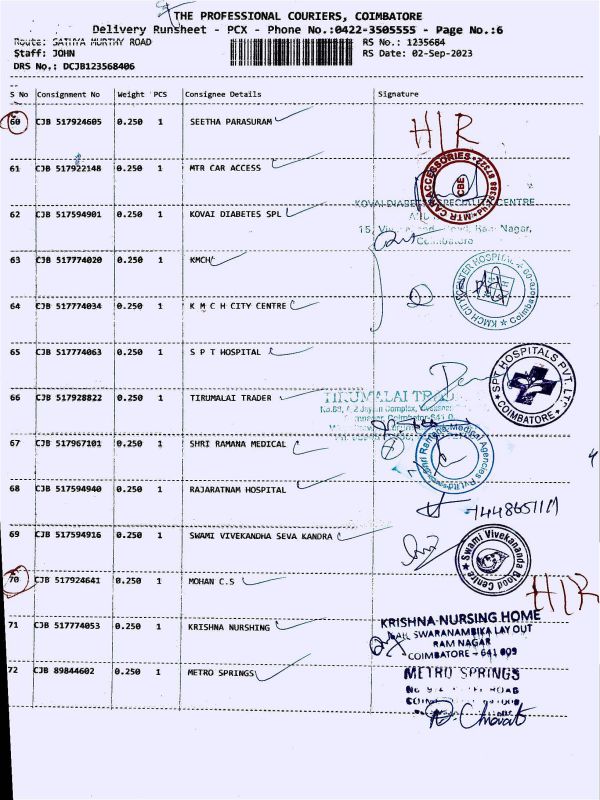 THE PROFESSIONAL COURIERS, COIMBATORE
Delivery Runsheet - PCX - Phone No.:0422-3505555 - Page No.:6
Route: SATHYA MURTHY ROAD RS No.: 1235684
Staff: JOHN RS Date: 02-Sep-2023
DRS No.: DCJB123568406
S No Consignment No Weight PCS Consignee Details Signature
60 CJB 517924605 0.250 1 SEETHA PARASURAM H/R
61 CJB 517922148 0.250 1 MTR CAR ACCESS
MTR CAR ACCESSORIES CBE
62 CJB 517594901 0.250 1 KOVAI DIABETES SPL
KOVAI DIABETES SPECIALITY CENTRE
Ram Nagar,
Coimbatore
63 CJB 517774020 0.250 1 KMCH
KMCH CITY CENTER HOSPITAL Coimbatore
64 CJB 517774034 0.250 1 K M C H CITY CENTRE
65 CJB 517774063 0.250 1 S P T HOSPITAL
SPT HOSPITALS PVT. LTD. COIMBATORE
66 CJB 517928822 0.250 1 TIRUMALAI TRADER
TIRUMALAI TRAD
67 CJB 517967101 0.250 1 SHRI RAMANA MEDICAL
Shri Ramana Medical Agencies Pvt ltd
68 CJB 517594940 0.250 1 RAJARATNAM HOSPITAL
69 CJB 517594916 0.250 1 SWAMI VIVEKANDHA SEVA KANDRA
Swami Vivekananda Blood Centre
70 CJB 517924641 0.250 1 MOHAN C.S H/R
71 CJB 517774053 0.250 1 KRISHNA NURSHING
KRISHNA NURSING HOME
SWARANAMBIKA LAY OUT
RAM NAGAR
COIMBATORE - 641 009
72 CJB 89844602 0.250 1 METRO SPRINGS
METRO SPRINGS